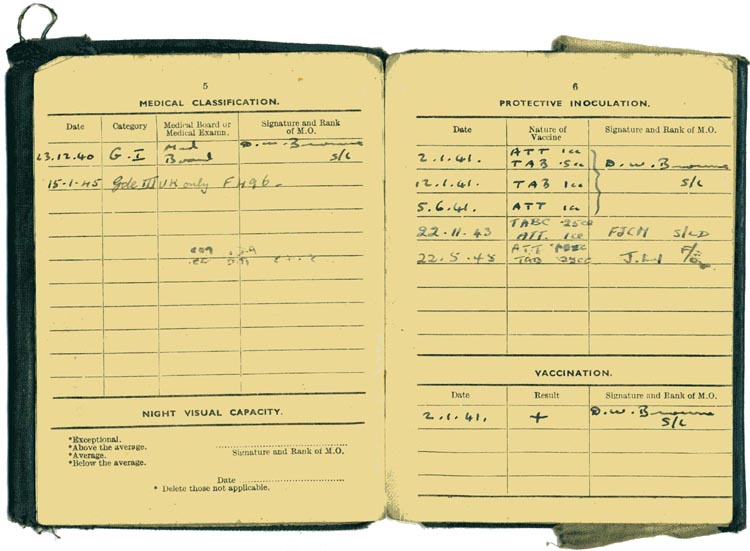 5
MEDICAL CLASSIFICATION.
Date Category Medical Board or Medical Examn. Signature and Rank of M.O.
23.12.40 G.I Med Board D.W. Browne S/L
15-1-45 Gde III UK only F496
NIGHT VISUAL CAPACITY.
*Exceptional.
*Above the average.
*Average.
*Below the average.
Signature and Rank of M.O.
Date
* Delete those not applicable.
6
PROTECTIVE INOCULATION.
Date Nature of Vaccine Signature and Rank of M.O.
2.1.41. ATT 1cc
TAB .5cc D.W. Browne
12.1.41. TAB 1cc S/L
5.6.41. ATT 1cc
TABC .25cc
22.11.43 ATT. 1cc FJCM S/LD
ATT
22.5.45 TAB .25cc
VACCINATION.
Date Result Signature and Rank of M.O.
2.1.41. + D.W. Browne
S/L